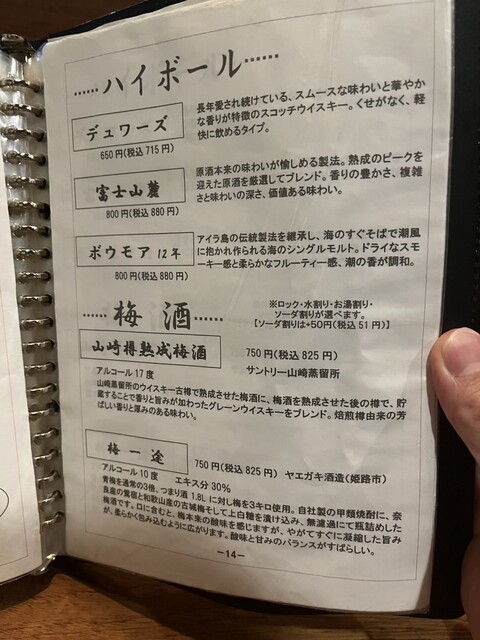 ……ハイボール……
デュワーズ
650円(税込715円)
長年愛され続けている、スムースな味わいと華やか
な香りが特徴のスコッチウイスキー。くせがなく、軽
快に飲めるタイプ。
富士山麓
800円(税込880円)
原酒本来の味わいが愉しめる製法。熟成のピークを
迎えた原酒を厳選してブレンド。香りの豊かさ、複雑
さと味わいの深さ、価値ある味わい。
ボウモア 12年
800円(税込880円)
アイラ島の伝統製法を継承し、海のすぐそばで潮風
に抱かれ作られる海のシングルモルト。ドライなスモ
ーキー感と柔らかなフルーティー感、潮の香が調和。
……梅酒……
※ロック・水割り・お湯割り・
ソーダ割りが選べます。
【ソーダ割りは+50円(税込51円)】
山崎樽熟成梅酒
750円(税込825円)
サントリー山崎蒸留所
アルコール17度
山崎蒸留所のウイスキー古樽で熟成させた梅酒に、梅酒を熟成させた後の樽で、貯
蔵することで香りと旨みが加わったグレーンウイスキーをブレンド。焙煎樽由来の芳
ばしい香りと厚みのある味わい。
梅一途
750円(税込825円) ヤエガキ酒造(姫路市)
アルコール10度 エキス分30%
青梅を通常の3倍。つまり酒1.8Lに対し梅を3キロ使用。自社製の甲類焼酎に、奈
良産の鶯宿と和歌山産の古城梅そして上白糖を漬け込み、無濾過にて瓶詰めした
梅酒です。口に含むと、梅本来の酸味を感じますが、やがてすぐに凝縮した旨み
が、柔らかく包み込むように広がります。酸味と甘みのバランスがすばらしい。
-14-